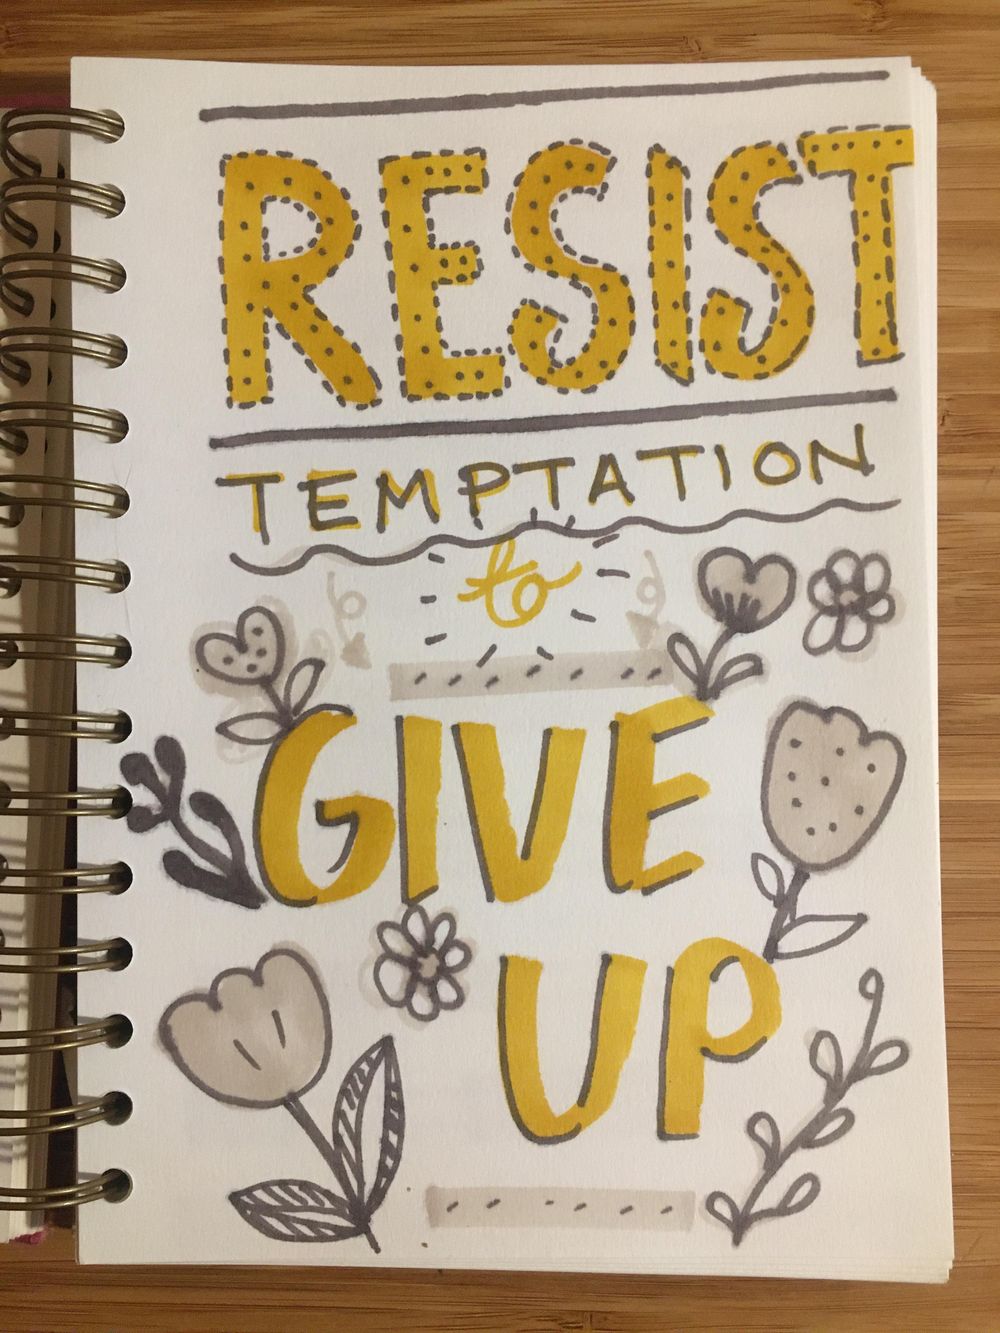 RESIST
TEMPTATION
to
GIVE
UP